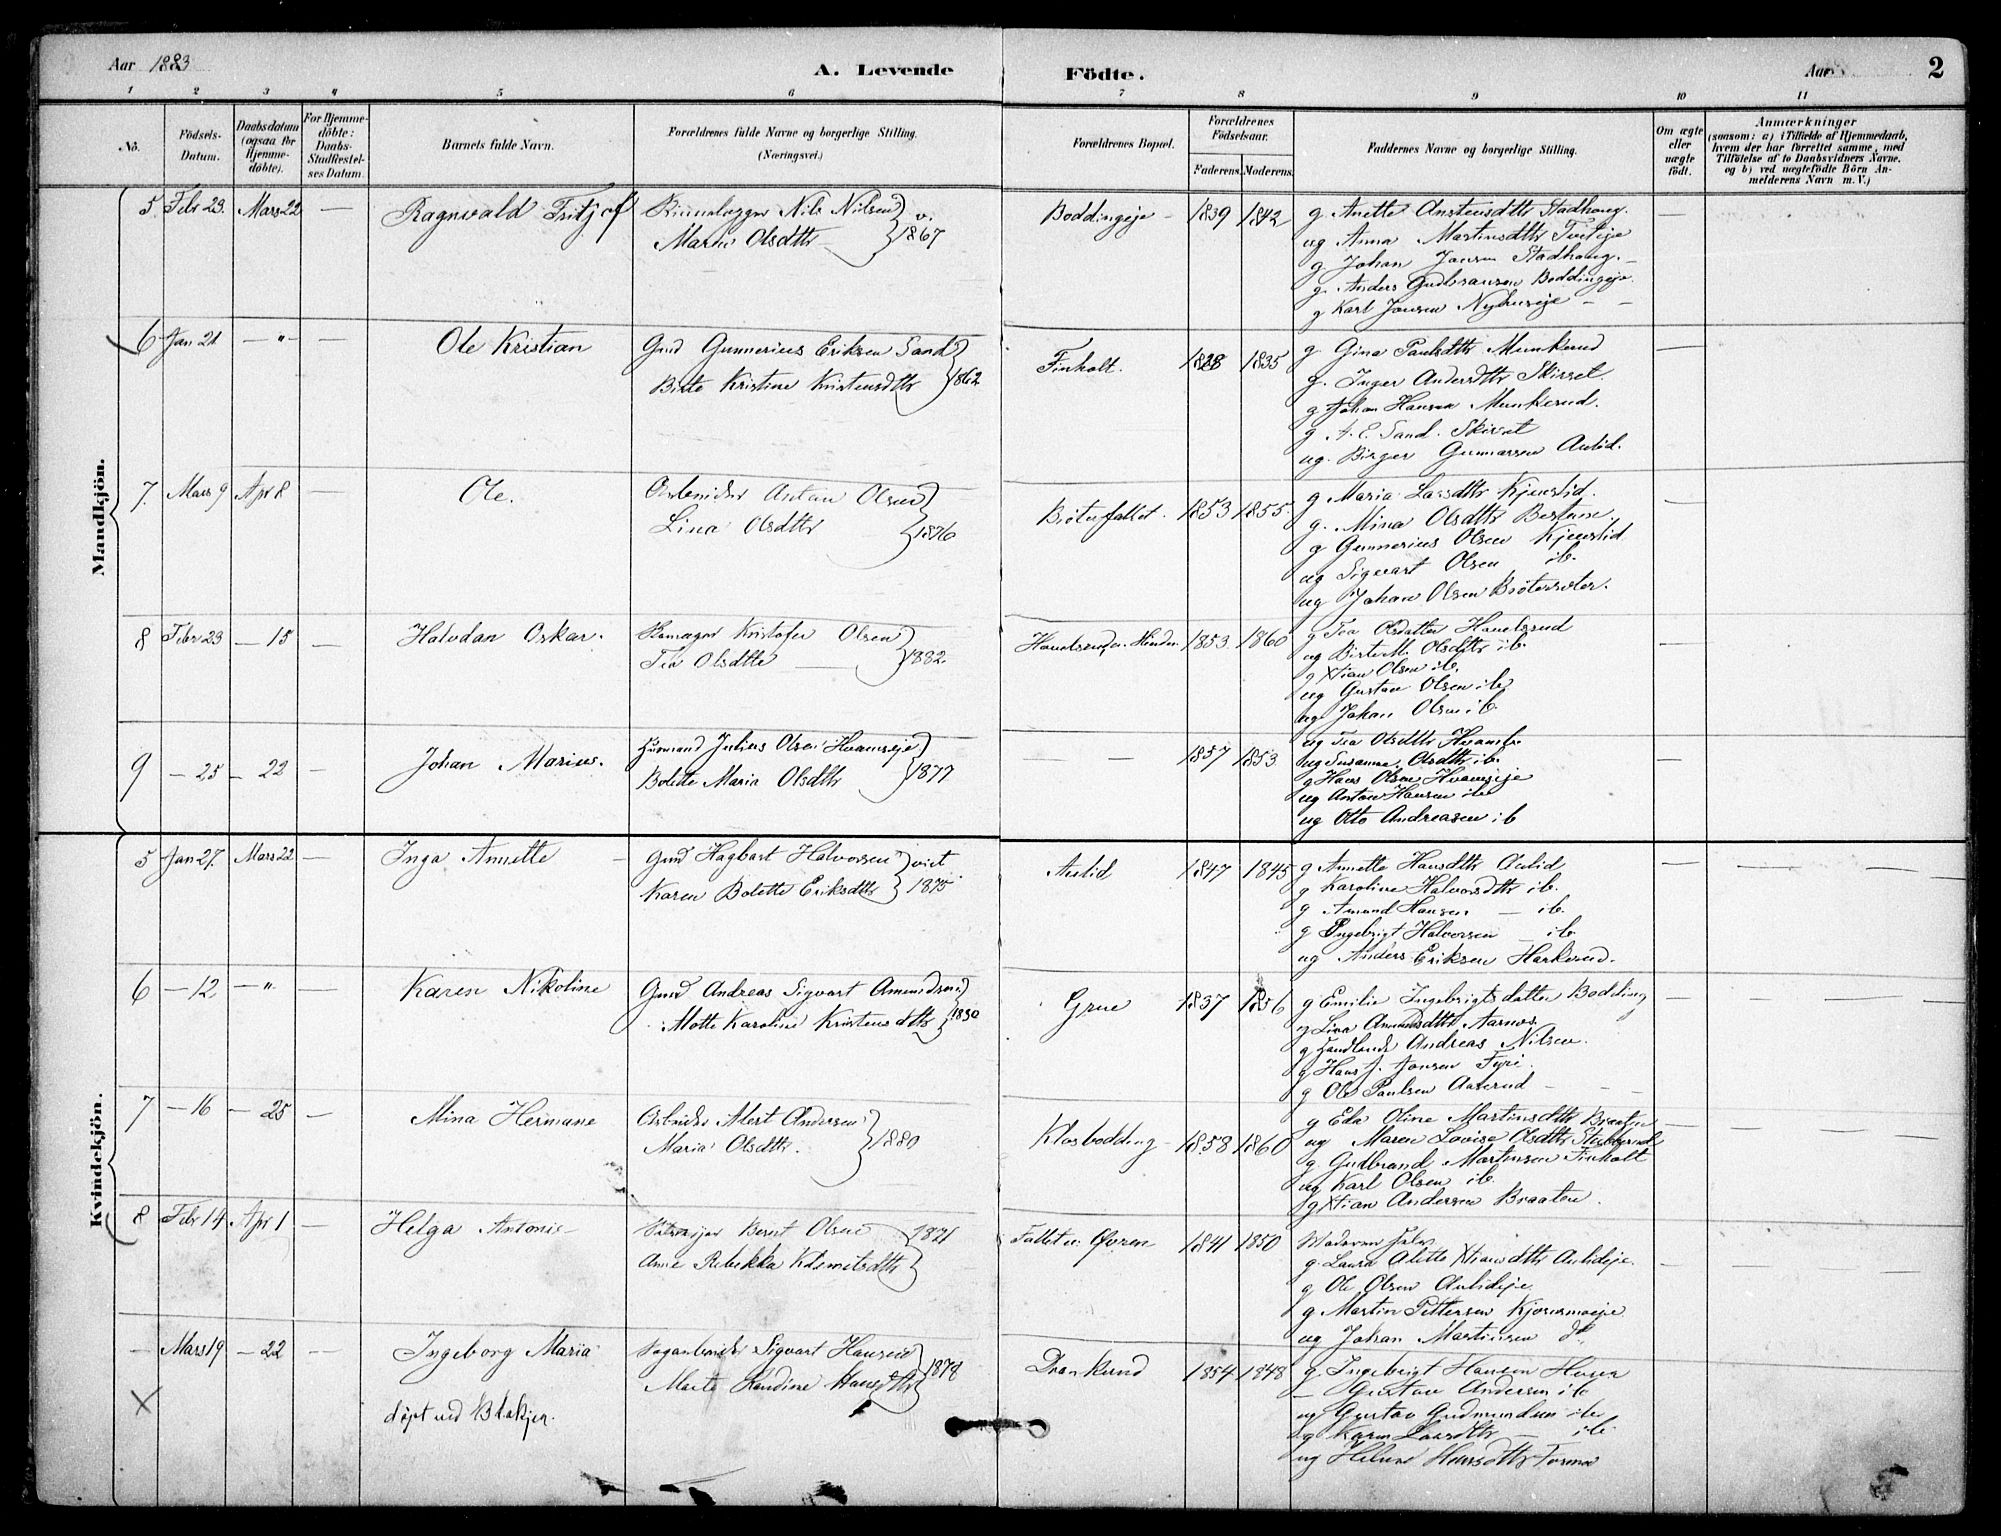 Aar 1883
A. Levende
Födte.
Aar
2
1 2 3 4 5 6 7 8 9 10 11
No.
Födsels-Datum.
Daabsdatum (ogsaa for Hjemme-döbte).
For Hjemme-döbte: Daabs-Stadfæstel-ses Datum.
Barnets fulde Navn.
Forældrenes fulde Navne og borgerlige Stilling. (Næringsvei.)
Forældrenes Bopæl.
Forældrenes Födselsaar.
Faderens. Moderens.
Faddernes Navne og borgerlige Stilling.
Om ægte eller uægte födt.
Anmærkninger
(saasom: a) i Tilfælde af Hjemmedaab, hvem der har forrettet samme, med Tilföielse af to Daabsvidners Navne, og b) ved uægtefödte Börn An-melderens Navn m. V.)
Mandkjön.
5 Febr 23. Mars 22 — Ragnvald Fritjof
Nils Nilsen
Marie Olsdttr
v. 1867
Boddingeje — 1839 1842
g Anette Anstensdttr Stadhoug.
ug Anna Martinsdttr
g. Johan Jansen Stadhoug. —
g. Anders Gudbransen Boddingeje.
g Karl Jansen — —
6 Jan 21 — " — — Ole Kristian
Gmd Gunnerius Eriksen Sand
Birte Kristine Kristensdttr
1862
Finholt. 1828 1835
g Gina Paulsdttr Munkerud
g. Inger Andersdttr Skirset.
g Johan Hansen Munkerud.
g A. E. Sand. Skirset
ug. Birger Gunnarsen Aulid.
7. Mars 9 Apr 8 — Ole.
Arbeider Anton Olsen
Lina Olsdttr
1876
Bröterfallet. 1853 1855.
g Maria Larsdttr Kjenstid.
g. Mina Olsdttr
g Gunnerius Olsen Kjenstid
ug Sigvart Olsen ib.
ug Johan Olsen
8 Febr 23 — 15 — Halvdan Oskar.
Kristofer Olsen
Tea Olsdttr —
1882.
1853. 1860
g Tea Olsdatter
ug Birte M. Olsdttr ib.
g Xtian Olsen ib.
ug Gustav Olsen ib
ug Johan Olsen ib.
9 — 25 — 22 — Johan Marius.
Husmand Julius Olsen Hvamseje
Bolette Maria Olsdttr
1877
— — 1857 1853
ug Tea Olsdttr
ug Susanna Olsdttr ib.
g Hans Olsen Hvamseje
ug Anton Hansen ib
ug Otto Andreasen ib
Kvindekjön.
5 Jan 27. Mars 22 — Inga Annette —
Gmd Hagbart Halvorsen
Karen Bolette Eriksdttr
viet 1875
Aulid 1847 1845
g Annette Hansdttr Aulid
g Karoline Halvorsdttr ib.
g Amund Hansen — ib.
g Ingebrigt Halvorsen — ib
ug Anders Eriksen Harkerud.
6 — 12 — " — Karen Nikoline
Gmd Andreas Sigvart Amundsen
Mathe Karoline Kristensdttr
1880
Grue 1837 1856
g Emilie Ingebrigtsdatter Bodding
g Lina Amundsdttr Aarnes
g Handlande Andreas Nilsen.
g Hans J. Jonsen
g Ole Paulsen Aaserud — —
7 — 16 — 25 — Mina Hermane
Arbeider Andersen
Maria Olsdttr.
1880
Klosbodding — 1858 1860
g Eda Oline Martinsdttr Braaten
ug Maren Lovise Olsdttr
g. Gudbrand Martinsen Finholt
ug Karl Olsen ib.
g Xtian Andersen Braaten.
8 Febr 14 Apr 1 — Helga Antonie
Bernt Olsen
Anne Rebekka
1871
1841 1850
Moderen Selv
g. Laura Alette Xtiansdttr Aulideje.
g Ole Olsen Aulideje
g Martin Pettersen
ug Johan Martinsen do
— Mars 19 — 22 — Ingeborg Maria
X
döpt ved Blakjer.
Sagarbeider Sigvart Hansen
Marte Randine Hansdttr
1878
1854 1848
g. Ingebrigt Hansen
— Gustav Andersen ib
ug Gustav Gudmundsen ib
g Karen Larsdttr — ib
ug Helene Hansdttr